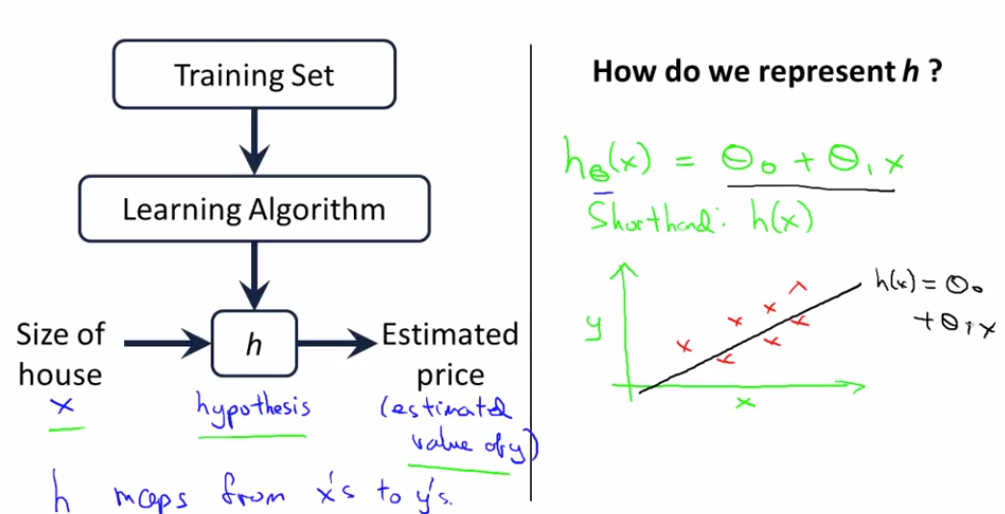 Training Set
Learning Algorithm
Size of
house
h
Estimated
price
x
hypothesis
(estimated
value of y)
h maps from x's to y's.
How do we represent h ?
hθ(x) = θ₀ + θ₁x
Shorthand: h(x)
y
x
h(x) = θ₀
+ θ₁x